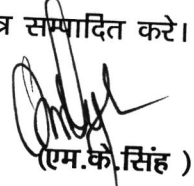 त्र सम्पादित करे।
(एम.के.सिंह )